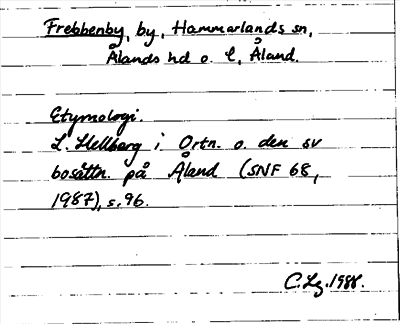 Frebbenby, by, Hammarlands sn,
Ålands hd o. l, Åland.
Etymologi.
L. Hellberg i Ortn. o. den sv
bosättn. på Åland (SNF 68,
1987), s. 96.
C. Lg. 1988.